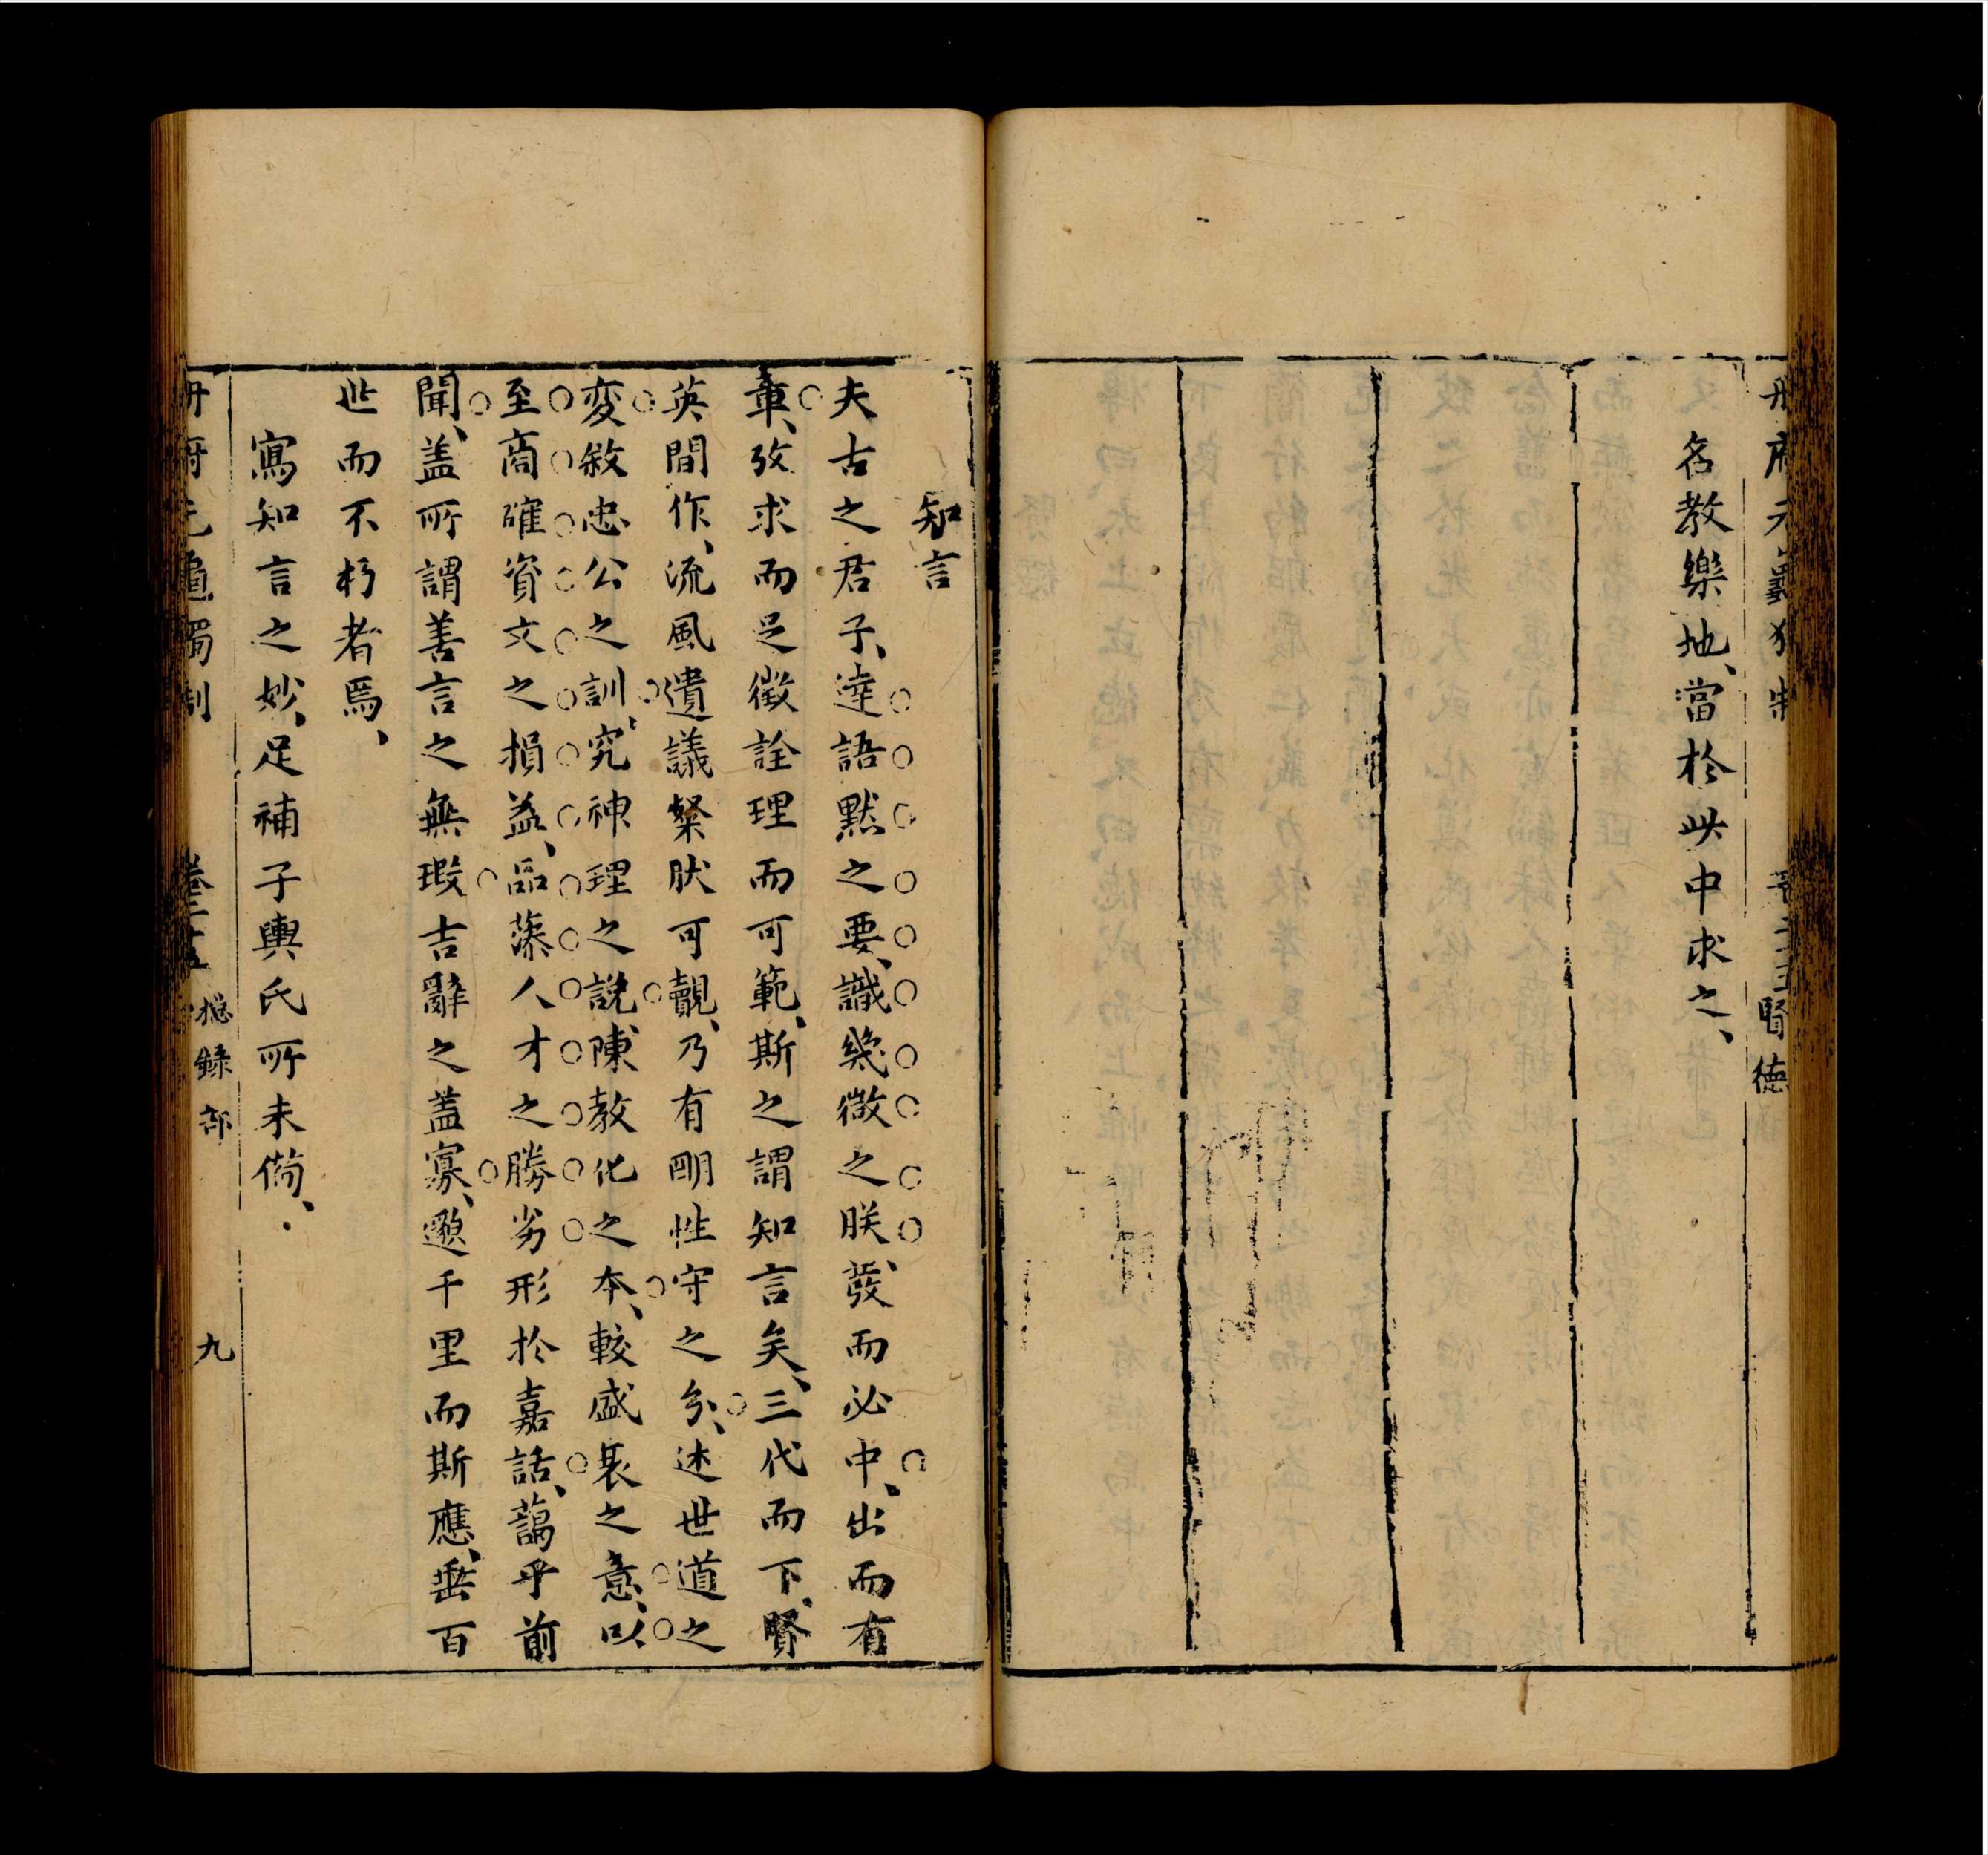 名教樂地、當於此中求之、
賢德
知言
夫古之君子、達語黙之要、識幾微之朕、發而必中、出而有
章、攷求而足徵詮理而可範、斯之謂知言矣、三代而下、賢
英間作、流風遺議粲肰可覩、乃有剛性守之分、述世道之
変敘忠公之訓、究神理之說、陳教化之本、較盛衰之意、以
至商確資文之損益、品藻人才之勝劣形於嘉話、藹乎前
聞、盖所謂善言之無瑕吉辭之盖寡、遬千里而斯應、垂百
世而不朽者焉、
寫知言之妙、足補子輿氏所未俻、
冊府元龜獨制
卷二十五
緫錄部
九